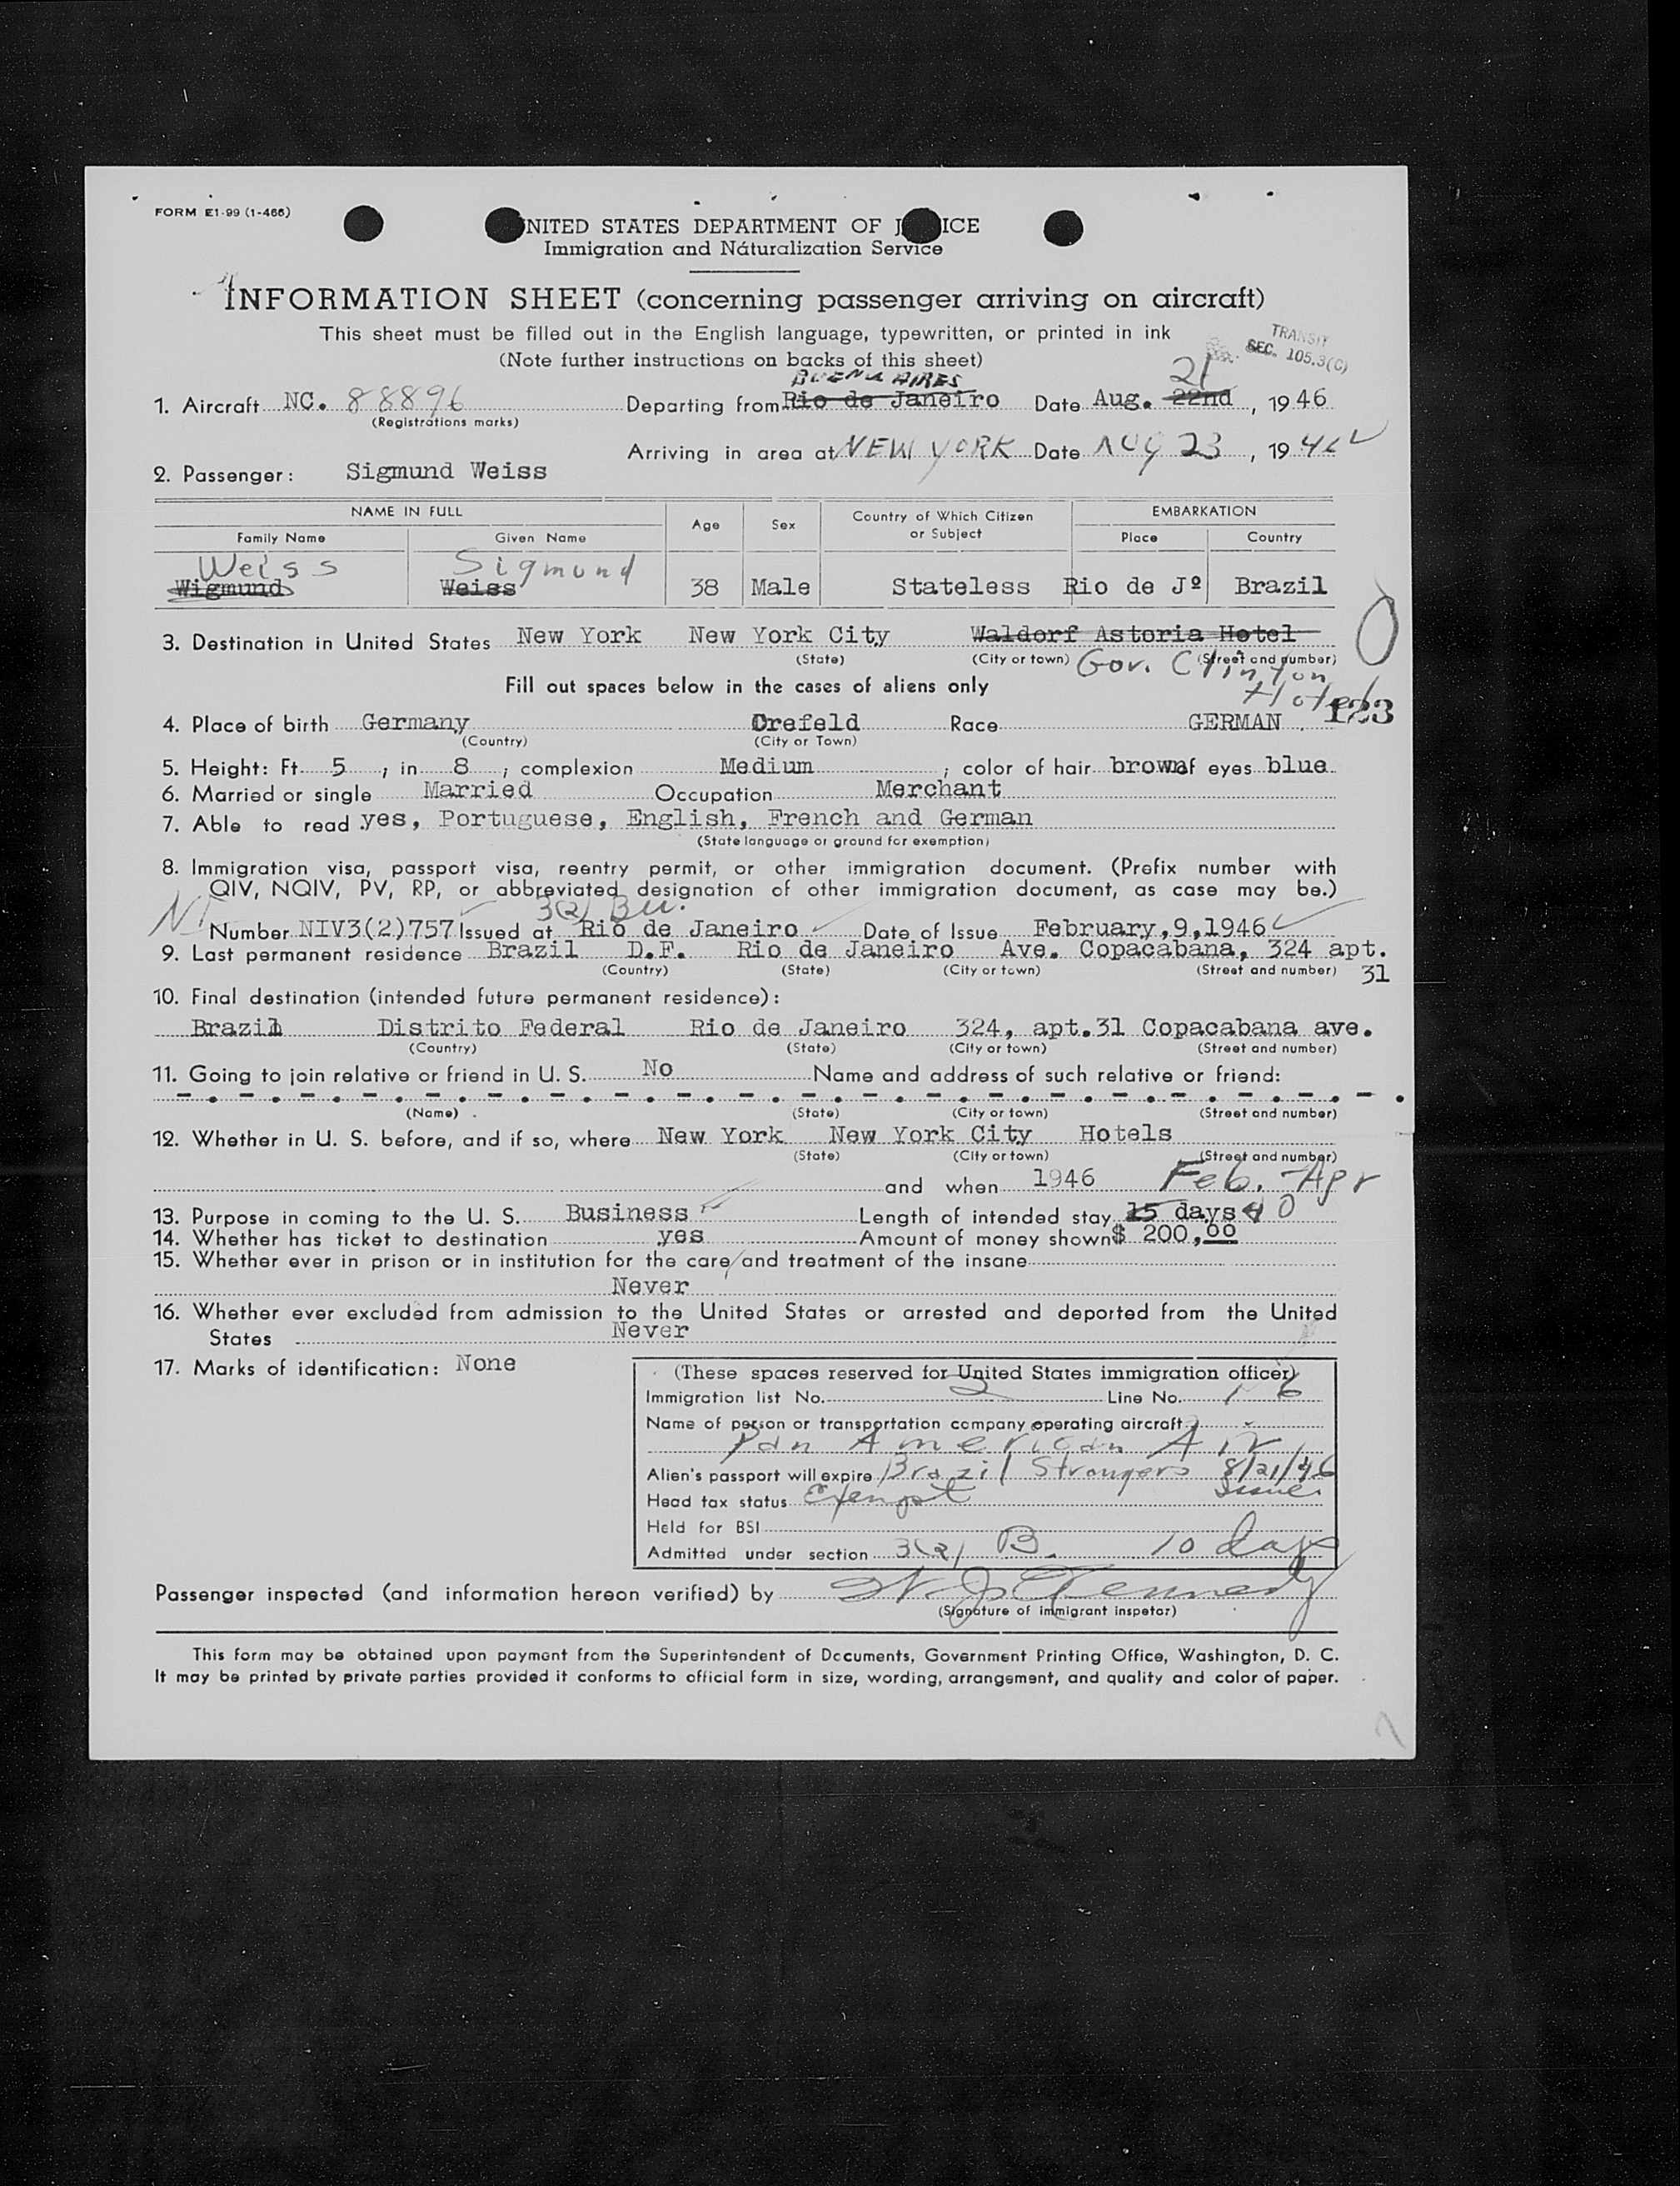 FORM E1-99 (1-466)
UNITED STATES DEPARTMENT OF J ICE
Immigration and Naturalization Service
INFORMATION SHEET (concerning passenger arriving on aircraft)
This sheet must be filled out in the English language, typewritten, or printed in ink
(Note further instructions on backs of this sheet)
TRANSIT
SEC. 105.3(C)
BUENA AIRES 21
1. Aircraft NC. 88896 Departing from Rio de Janeiro Date Aug. 22nd, 1946
(Registrations marks)
Arriving in area at NEW YORK Date AUG 23, 1946
2. Passenger: Sigmund Weiss
NAME IN FULL Age Sex Country of Which Citizen or Subject EMBARKATION
Family Name Given Name Place Country
Weiss Sigmund
Wigmund Weiss 38 Male Stateless Rio de Jº Brazil
3. Destination in United States New York New York City Waldorf Astoria Hotel
(State) (City or town) (Street and number)
Gov. Clinton Hotel
Fill out spaces below in the cases of aliens only
123
4. Place of birth Germany Crefeld Race GERMAN
(Country) (City or Town)
5. Height: Ft. 5, in 8; complexion Medium; color of hair brown of eyes blue
6. Married or single Married Occupation Merchant
7. Able to read yes, Portuguese, English, French and German
(State language or ground for exemption)
8. Immigration visa, passport visa, reentry permit, or other immigration document. (Prefix number with
QIV, NQIV, PV, RP, or abbreviated designation of other immigration document, as case may be.)
3(2) Bu.
Number NIV3(2)757 Issued at Rio de Janeiro Date of Issue February,9,1946
9. Last permanent residence Brazil D.F. Rio de Janeiro Ave. Copacabana, 324 apt.
(Country) (State) (City or town) (Street and number) 31
10. Final destination (intended future permanent residence):
Brazil Distrito Federal Rio de Janeiro 324, apt.31 Copacabana ave.
(Country) (State) (City or town) (Street and number)
11. Going to join relative or friend in U. S. No Name and address of such relative or friend:
(Name) (State) (City or town) (Street and number)
12. Whether in U. S. before, and if so, where New York New York City Hotels
(State) (City or town) (Street and number)
and when 1946 Feb. - Apr
13. Purpose in coming to the U. S. Business Length of intended stay 15 days 40
14. Whether has ticket to destination yes Amount of money shown $ 200,00
15. Whether ever in prison or in institution for the care and treatment of the insane
Never
16. Whether ever excluded from admission to the United States or arrested and deported from the United
States Never
17. Marks of identification: None
(These spaces reserved for United States immigration officer)
Immigration list No. 2 Line No. 6
Name of person or transportation company operating aircraft
Pan American Air
Alien's passport will expire Brazil Strangers 8/21/46
Issue
Head tax status Exempt
Held for BSI
Admitted under section 3(2) B. 10 days
Passenger inspected (and information hereon verified) by W. J. Kennedy
(Signature of immigrant inspetor)
This form may be obtained upon payment from the Superintendent of Documents, Government Printing Office, Washington, D. C.
It may be printed by private parties provided it conforms to official form in size, wording, arrangement, and quality and color of paper.